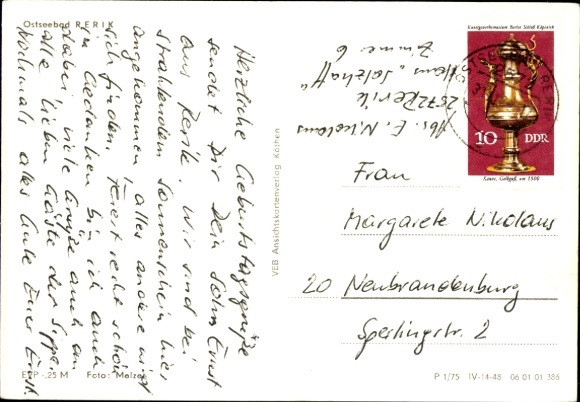 Ostseebad RERIK
Herzliche Geburtstagsgrüße
sendet Dir Dein Sohn Ernst
aus Rerik. Wir sind bei
strahlendem Sonnenschein hier
angekommen, alles andere wird
sich finden. Feiert recht schön
in Gedanken bin ich auch
dabei, viele Grüße auch an
alle lieben Gäste der Sippe.
Nochmals alles Gute Euer Ernst.
EVP -.25 M Foto: Melzer
VEB Ansichtskartenverlag Köthen
Abs. E. Nikolaus
2572 Rerik
Haus "Salzhaff"
Zimmer 6
Kunstgewerbemuseum Berlin Schloß Köpenick
10 DDR
Kanne, Gelbguß, um 1500
Frau
Margarete Nikolaus
20 Neubrandenburg
Sperlingstr. 2
P 1/75 IV-14-48 06 01 01 386